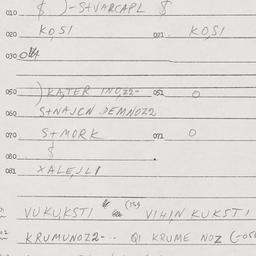 010 $ )-S+VARCAPL $
020 KO,SI 021 KO,SI
030
050 )KA,TER INO,22- 051 O
060 S+NAJCN DEMNO22
070 S+MORK 071 O
080
081 XALEJLI
VUKU,KSTI VIHIN KUKSTI
KRUMUNOZ2- -- QI KRUME NOZ